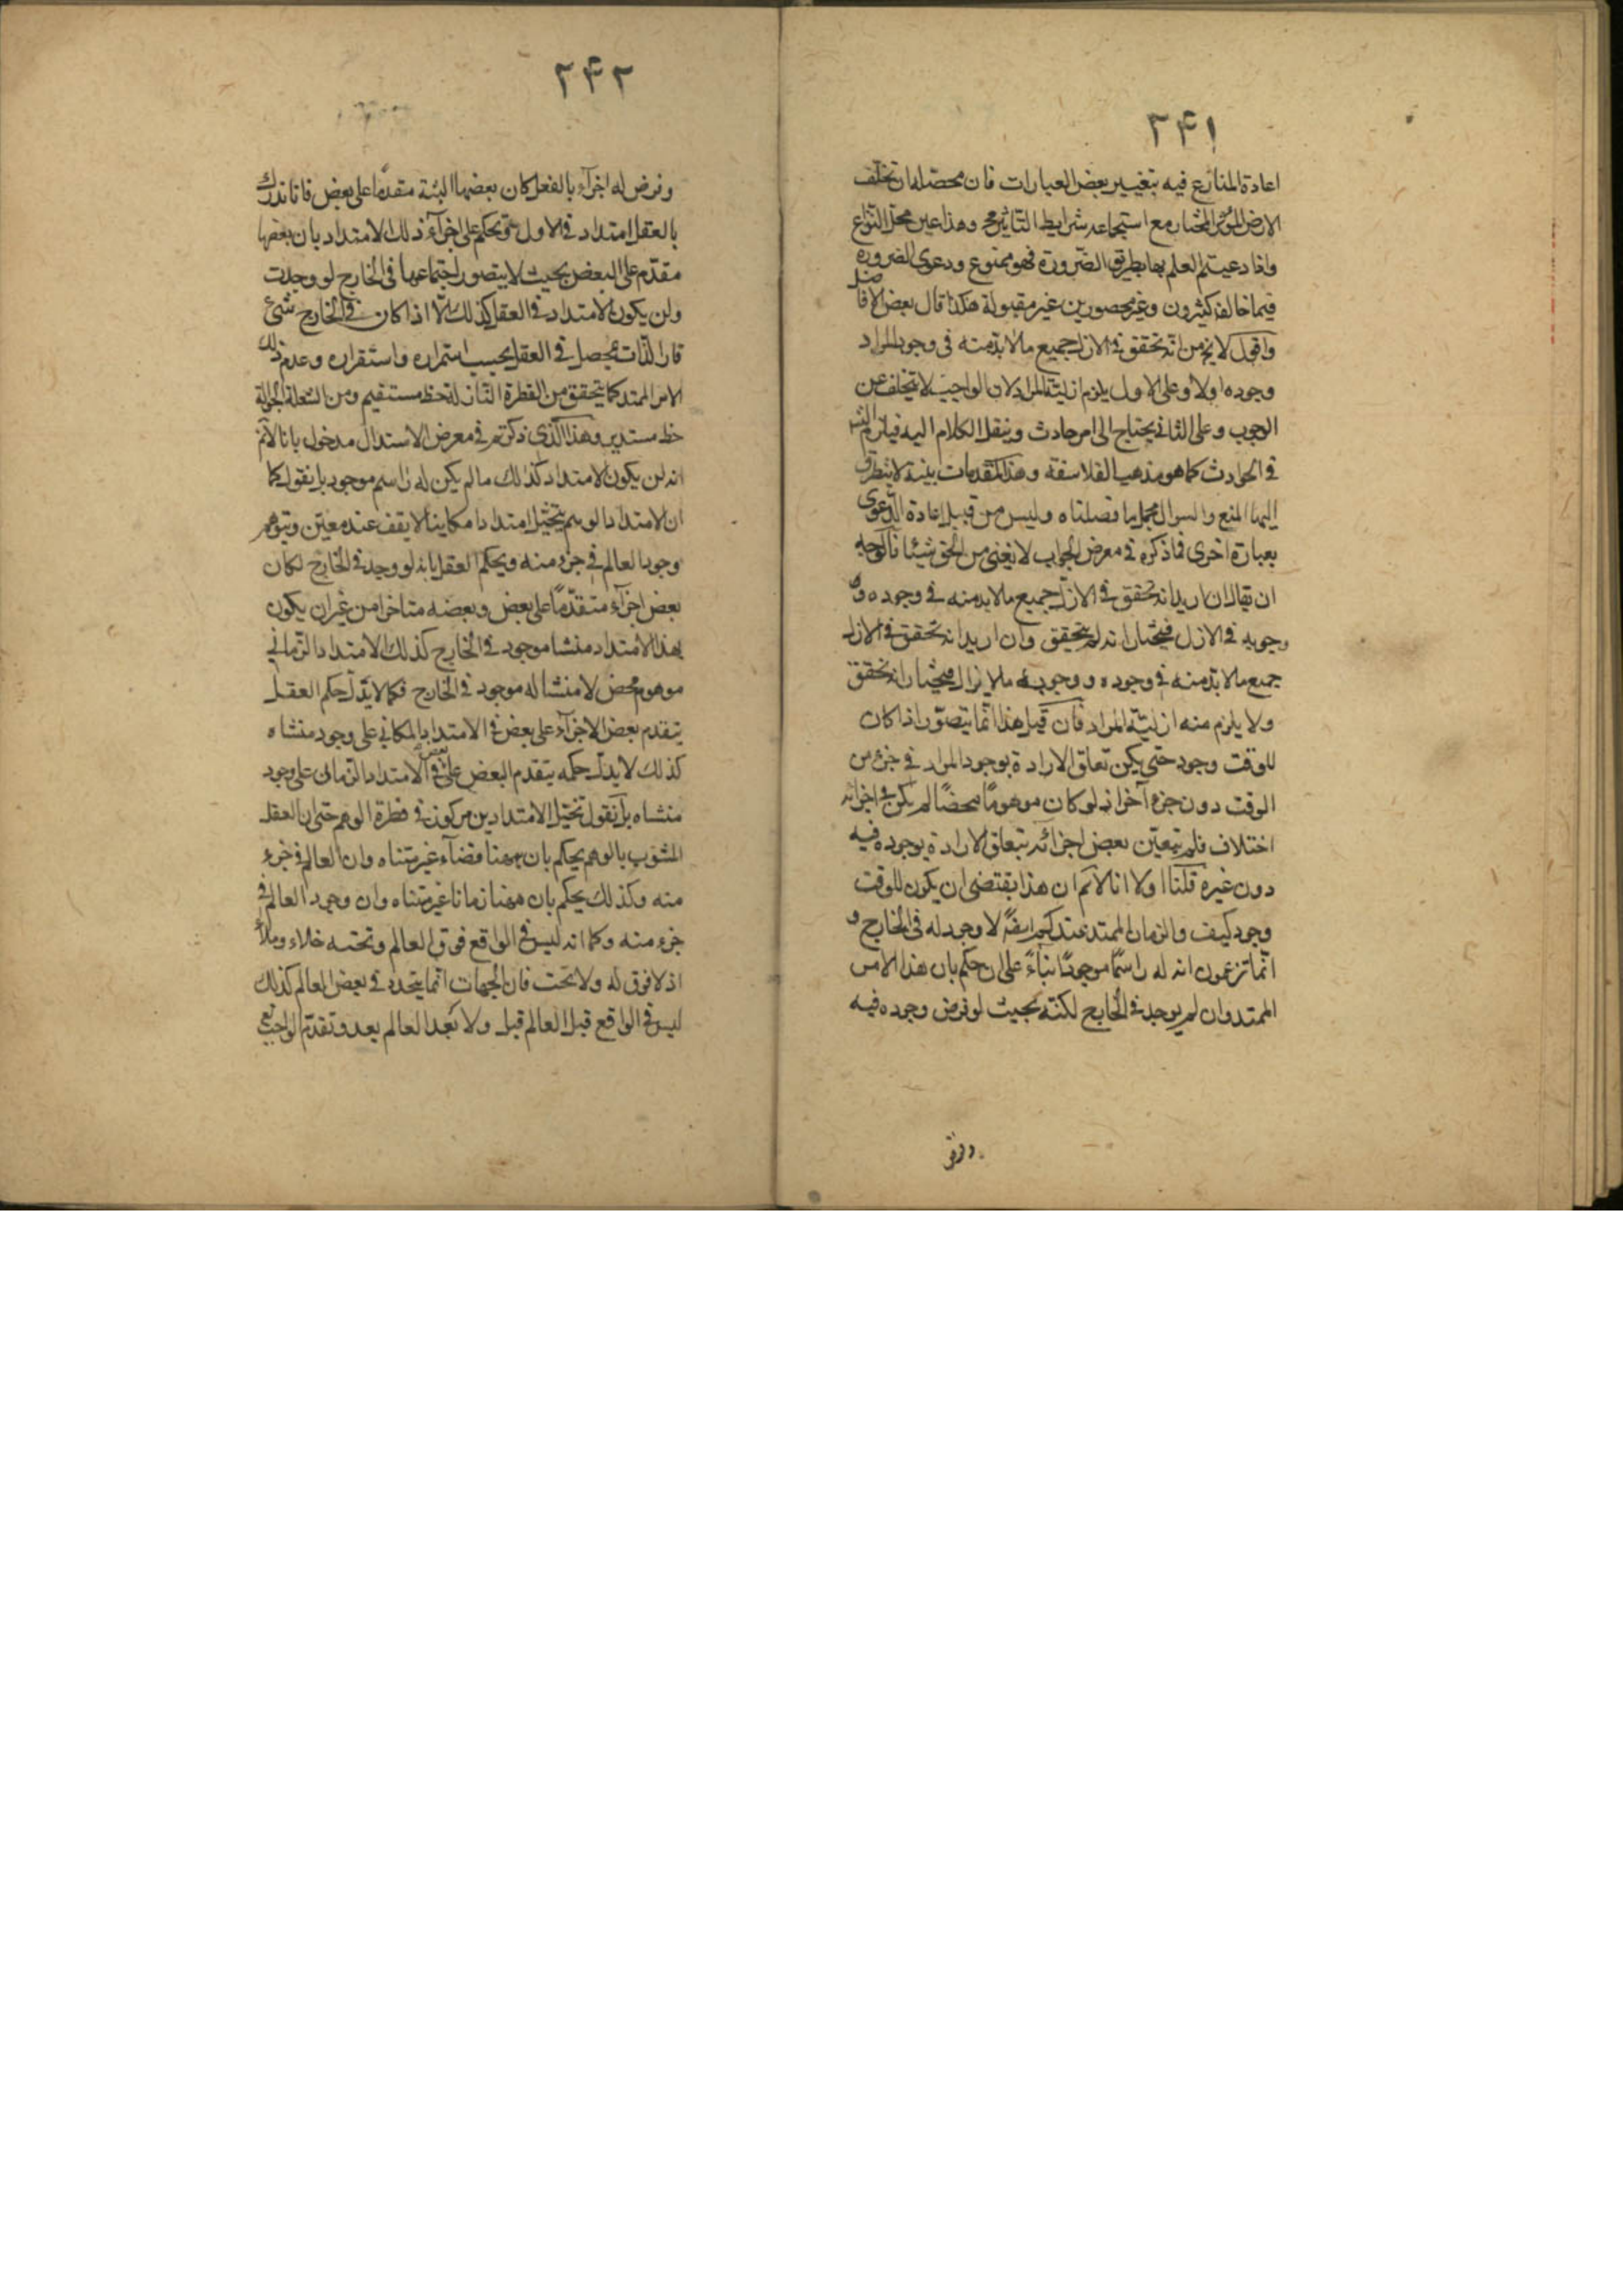 ٢٤١
اعادة المنازع فيه بتغيير بعض العبارات فان محصله ان تخلف
الارض المؤثر المختار مع استجماعه شرايط التاثير مح وهذا عين محل النزاع
وان ادعيتم العلم بها بطريق الضرورة فهو ممنوع ودعوى الضرورة
فيما خالفه كثيرون وغير محصورين غير مقبولة هكذا قال بعض الافاضل
واقول لا يخ من انه تحقق في الازل جميع ما لا بد منه في وجود المراد
وجوده اولا وعلى الاول يلزم ازلية المراد لان الواجب لا يتخلف عن
الوجب وعلى الثاني يحتاج الى امر حادث وينقل الكلام اليه فيلزم التسـ
في الحوادث كما هو مذهب الفلاسفة وهذه المقدمات بينة لا يتطرق
اليها المنع والسوال مجمل ما فصلناه وليس من قبيل اعادة الدعوى
بعبارة اخرى فما ذكره في معرض الجواب لا يغنى من الحق شيئا فالوجه
ان يقال ان اريد انه تحقق في الازل جميع ما لا بد منه في وجوده و
وجوبه في الازل فيختار انه لم يتحقق وان اريد انه تحقق في الازل
جميع ما لا بد منه في وجوده ووجوبه ما لا يزال فيختار انه تحقق
ولا يلزم منه ازلية المراد فان قيل هذا انما يتصور اذا كان
للوقت وجود حتى يكن تعلق الارادة بوجود المراد في جزء من
الوقت دون جزء آخر اذ لو كان موهوما محضا لم يكن في اجزائه
اختلاف فلم يتعين بعض اجزائه بتعلق الارادة بوجوده فيه
دون غيره قلنا اولا انا لا نم ان هذا يقتضى ان يكون للوقت
وجود كيف والزمان الممتد عندكم ايضا لا وجود له في الخارج و
انما تزعمون انه له راسما موجودا بناء على ان حكم بان هذا الامر
الممتد وان لم يوجد في الخارج لكنه بحيث لو فرض وجوده فيه
وفرض
٢٤٢
وفرض له اجزاء بالفعل كان بعضها البتة متقدما على بعض فانا ندرك
بالعقل امتداد في الاول ثم نحكم على اجزاء ذلك الامتداد بان بعضها
مقدم على البعض بحيث لا يتصور اجتماعها في الخارج لو وجدت
ولن يكون الامتداد في العقل كذلك الا اذا كان في الخارج شئ
قار الذات يحصل في العقل بحسب استمراره واستقراره وعدم ذلك
الامر الممتد كما يتحقق من القطرة النازلة خط مستقيم ومن الشعلة الجوالة
خط مستدير وهذا الذي ذكرتم في معرض الاستدال مدخول بانا لا نم
انه لن يكون الامتداد كذلك ما لم يكن له راسم موجود بل نقول كما
ان الامتداد الوهم يتخيل امتدادا مكانيا لا يقف عند معين ويتوهم
وجود العالم في جزء منه ويحكم العقل بانه لو وجد في الخارج لكان
بعض اجزاء متقدما على بعض وبعضه متاخرا من غير ان يكون
لهذا الامتداد منشا موجود في الخارج كذلك الامتداد الزماني
موهوم محض لا منشا له موجود في الخارج فكما لا يدل حكم العقل
بتقدم بعض الاجزاء على بعض في الامتداد المكاني على وجود منشاه
كذلك لا يدل حكمه بتقدم البعض على بعض في الامتداد الزمانى على وجود
منشاه بل نقول تخيل الامتدادين مركوز في فطرة الوهم حتى ان العقل
المشوب بالوهم يحكم بان ههنا فضاء غير متناه وان العالم في جزء
منه وكذلك يحكم بان ههنا زمانا غير متناه وان وجود العالم في
جزء منه وكما انه ليس في الواقع فوق العالم وتحته خلاء وملأ
اذ لا فوق له ولا تحت فان الجهات انما يتحدد في بعض العالم كذلك
ليس في الواقع قبل العالم قبل ولا بعد العالم بعد وتقدم الواجب تع